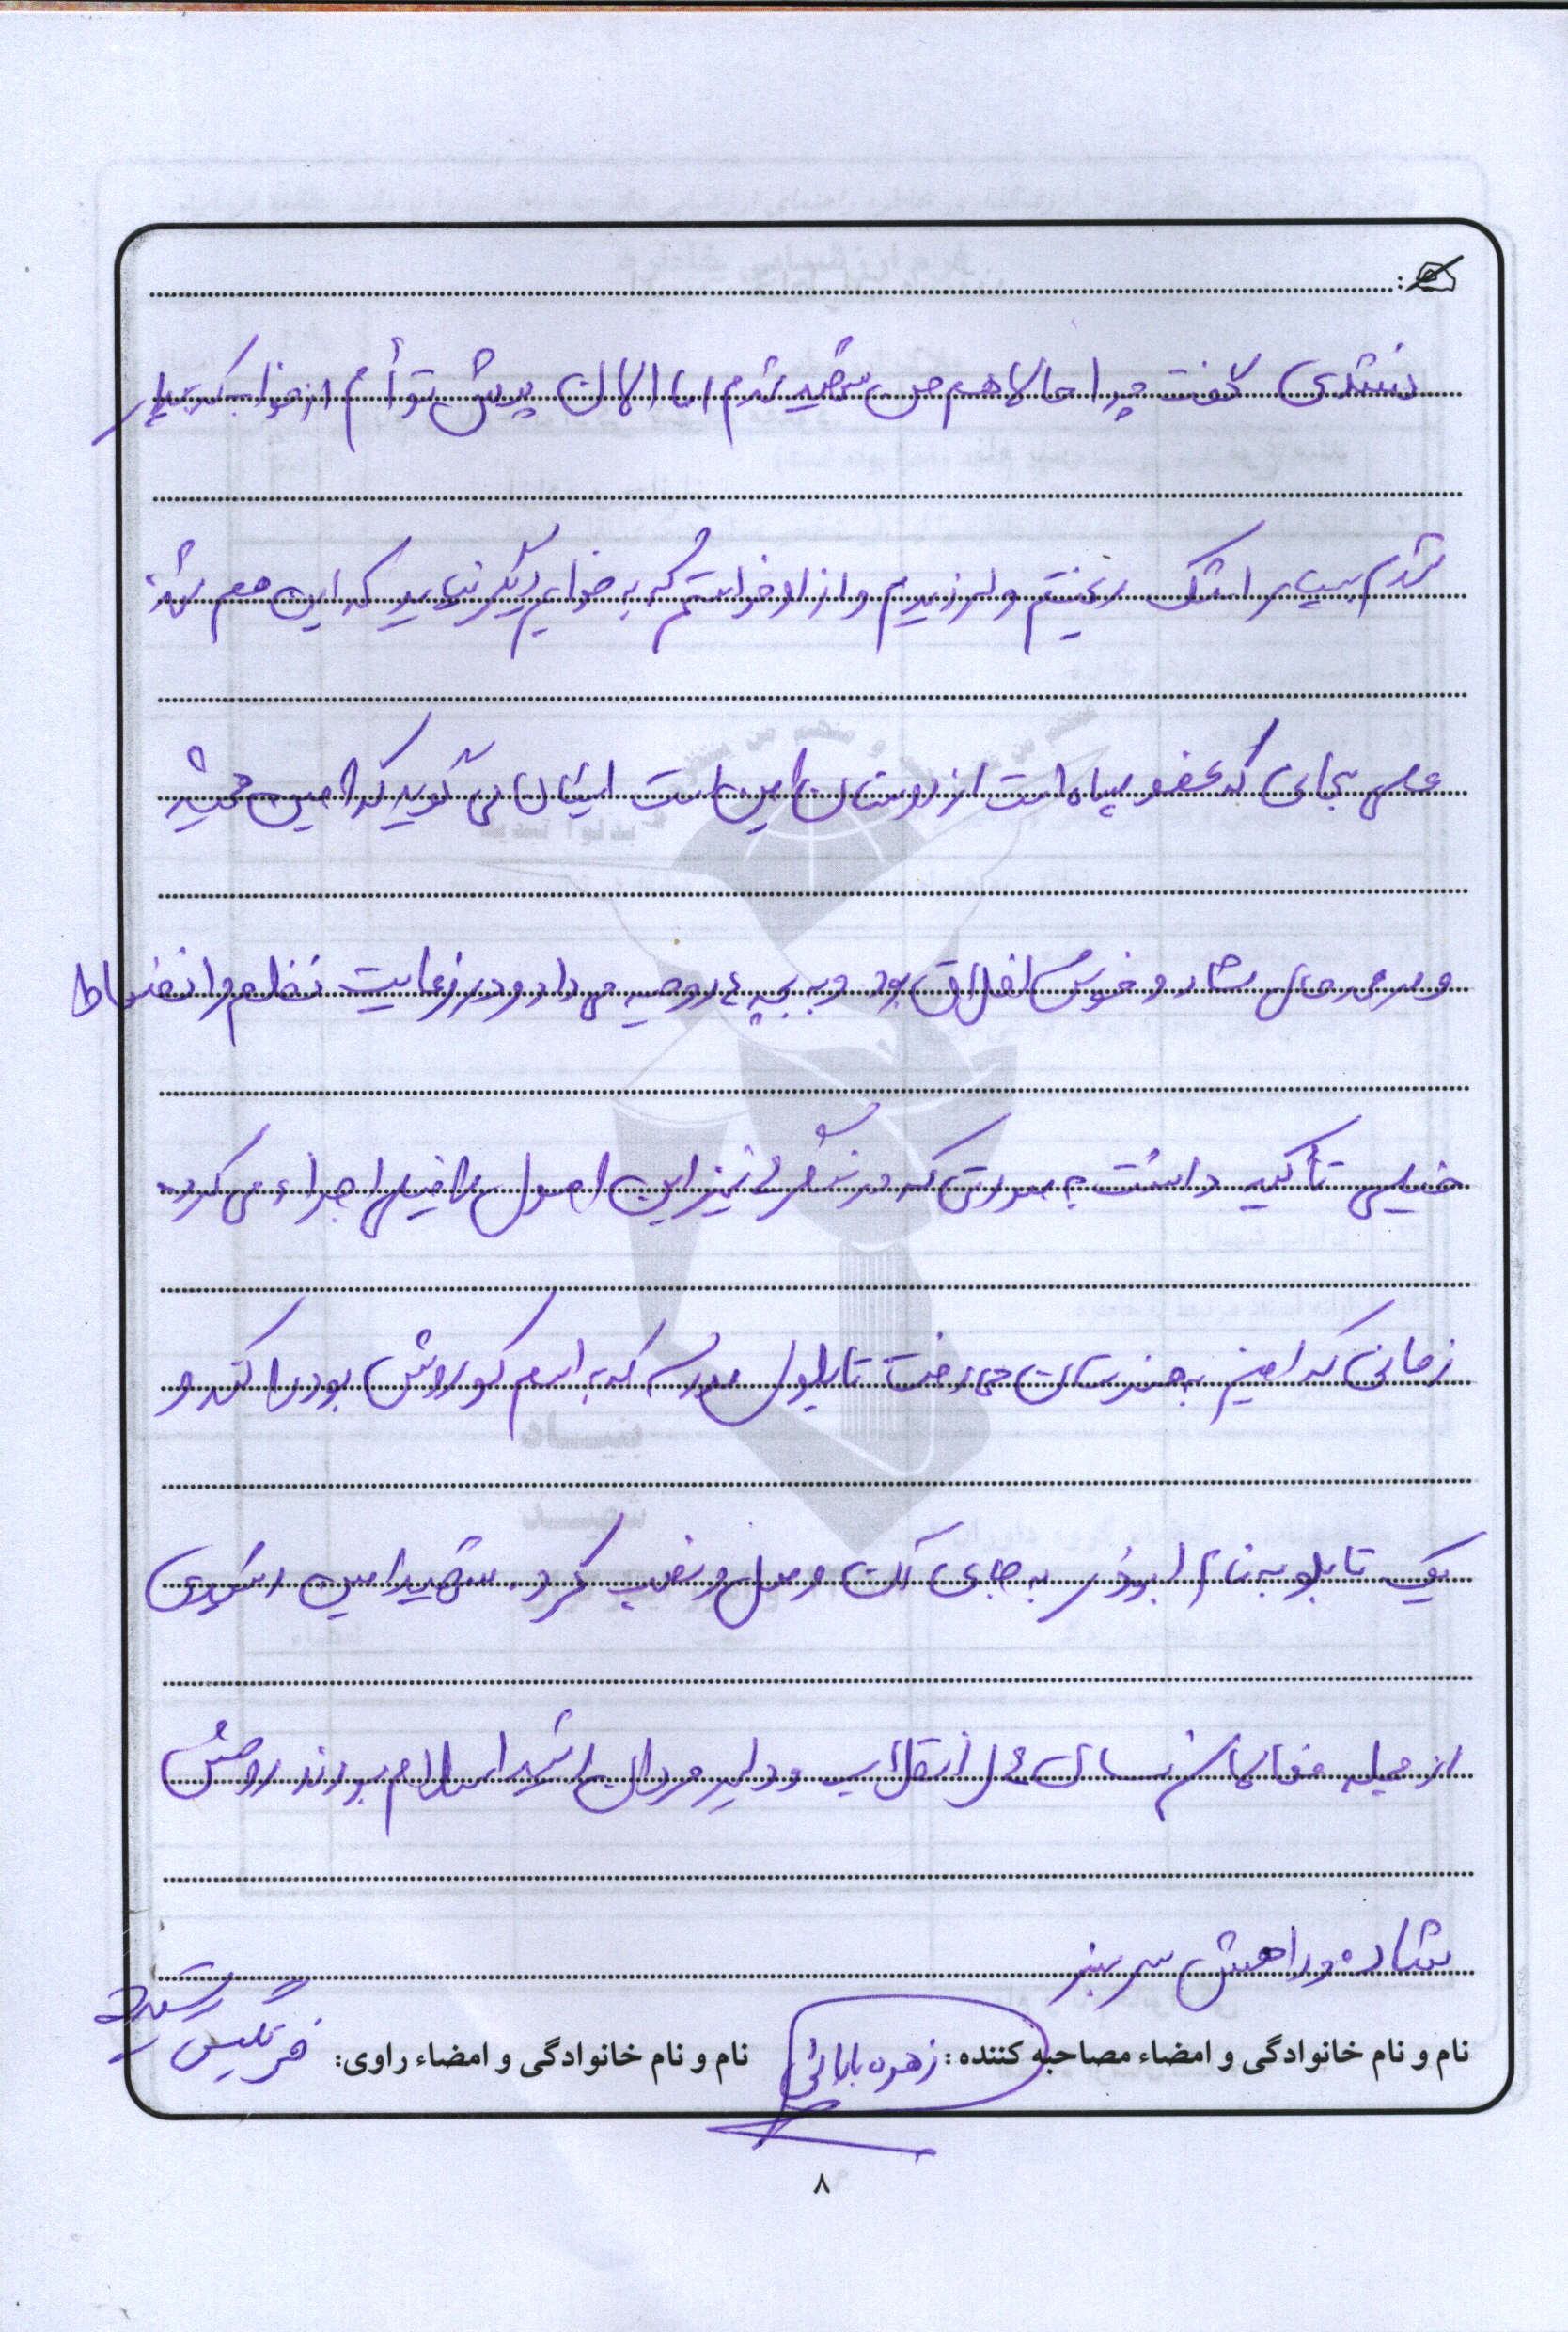 نشدی گفت چرا حالا هم من شهید شدم اما الان پیش تو أم از خواب که بیدار
شدم بسیار اشک ریختم و لرزیدم و از او خواستم که به خوابم دیگر نیاید که این هم شد.
علی نجاتی که عضو سپاه است از دوستان امین است ایشان می گوید که امین همیشه
و در همه حال شاد و خوش اخلاق بود و به بچه ها روحیه می داد و در رعایت نظم و انضباط
خیلی تأکید داشت به صورتی که در سنگر نیز این اصول را خیلی اجراء می کرد.
زمانی که امین به هنرستان می رفت تابلوی مدرسه که به اسم کوروش بود را کند و
یک تابلو به نام ابوذر به جای آن وصل و نصب کرد. شهید امین رشیدی
از جمله فعالان سال انقلاب و دلیر مردان اسلام بودند روحش
شاد و راهش سر سبز
نام و نام خانوادگی و امضاء مصاحبه کننده: زهره بابائی نام و نام خانوادگی و امضاء راوی: فرنگیس رشیدی
۸